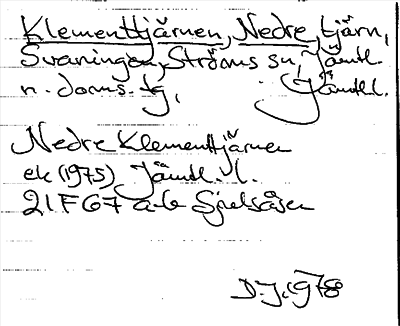 Klementtjärnen, Nedre, tjärn,
Svaningen, Ströms sn, Jämtl.
n. doms. tg, Jämtl.
Nedre Klementtjärnen
ek (1975) Jämtl. l.
21F67 a-b Sjulsåsen
D.J. 1978